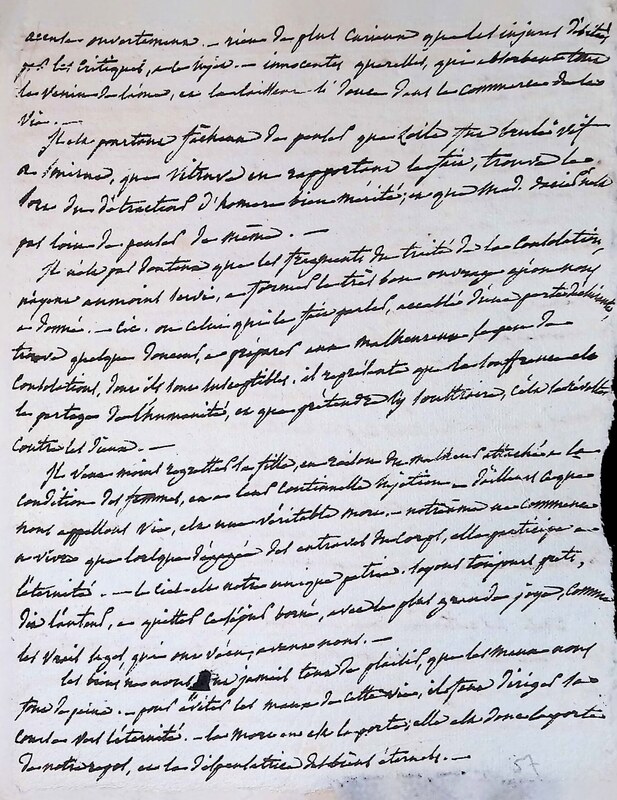 accuse ouvertement. — rien de plus curieux que les injures débitées
par les critiques, à ce sujet. — innocentes querelles, qui absorbent tout
le venin de l'ame, et la laissent si douce dans le commerce de la
vie. —
Il est pourtant fâcheux de penser que Zoïle fut brulé vif
à Smirne, que Vitruve en rapportant le fait, trouve le
sort du détracteur d'homere bien mérité; et que Mad. dacier n'est
pas loin de penser de même. —
Il n'est pas douteux que les fragments du traité de la Consolation,
n'ayent au moins servi, a former le très bon ouvrage qu'on nous
a donné. — Cic. ou celui qui le fait parler, accablé d'une perte récente,
trouve quelque douceur, a préparer aux malheureux le peu de
Consolations, dont ils sont susceptibles. il représente que la souffrance est
le partage de l'humanité, et que prétendre s'y soustraire, c'est se révolter
contre les Dieux. —
Il veut moins regretter sa fille, en raison du malheur attaché a la
condition des femmes, et a leur continuelle sujétion — d'ailleurs ce que
nous appellons vie, est une véritable mort. — notre ame ne commence
a vivre que lorsque dégagée des entraves du corps, elle participe a
l'éternité. — le Ciel est notre unique patrie. soyons toujours prets,
dit l'auteur, a quitter ce séjour borné, avec la plus grande joye, comme
les vrais sages, qui ont vécu, avant nous. —
les biens ne nous ont jamais tant de plaisir, que les maux nous
font de peine. — pour éviter les maux de cette vie, il faut diriger sa
course vers l'éternité. — la mort en est la porte; elle est donc la porte
de notre repos, et la dispensatrice des biens éternels. —
57